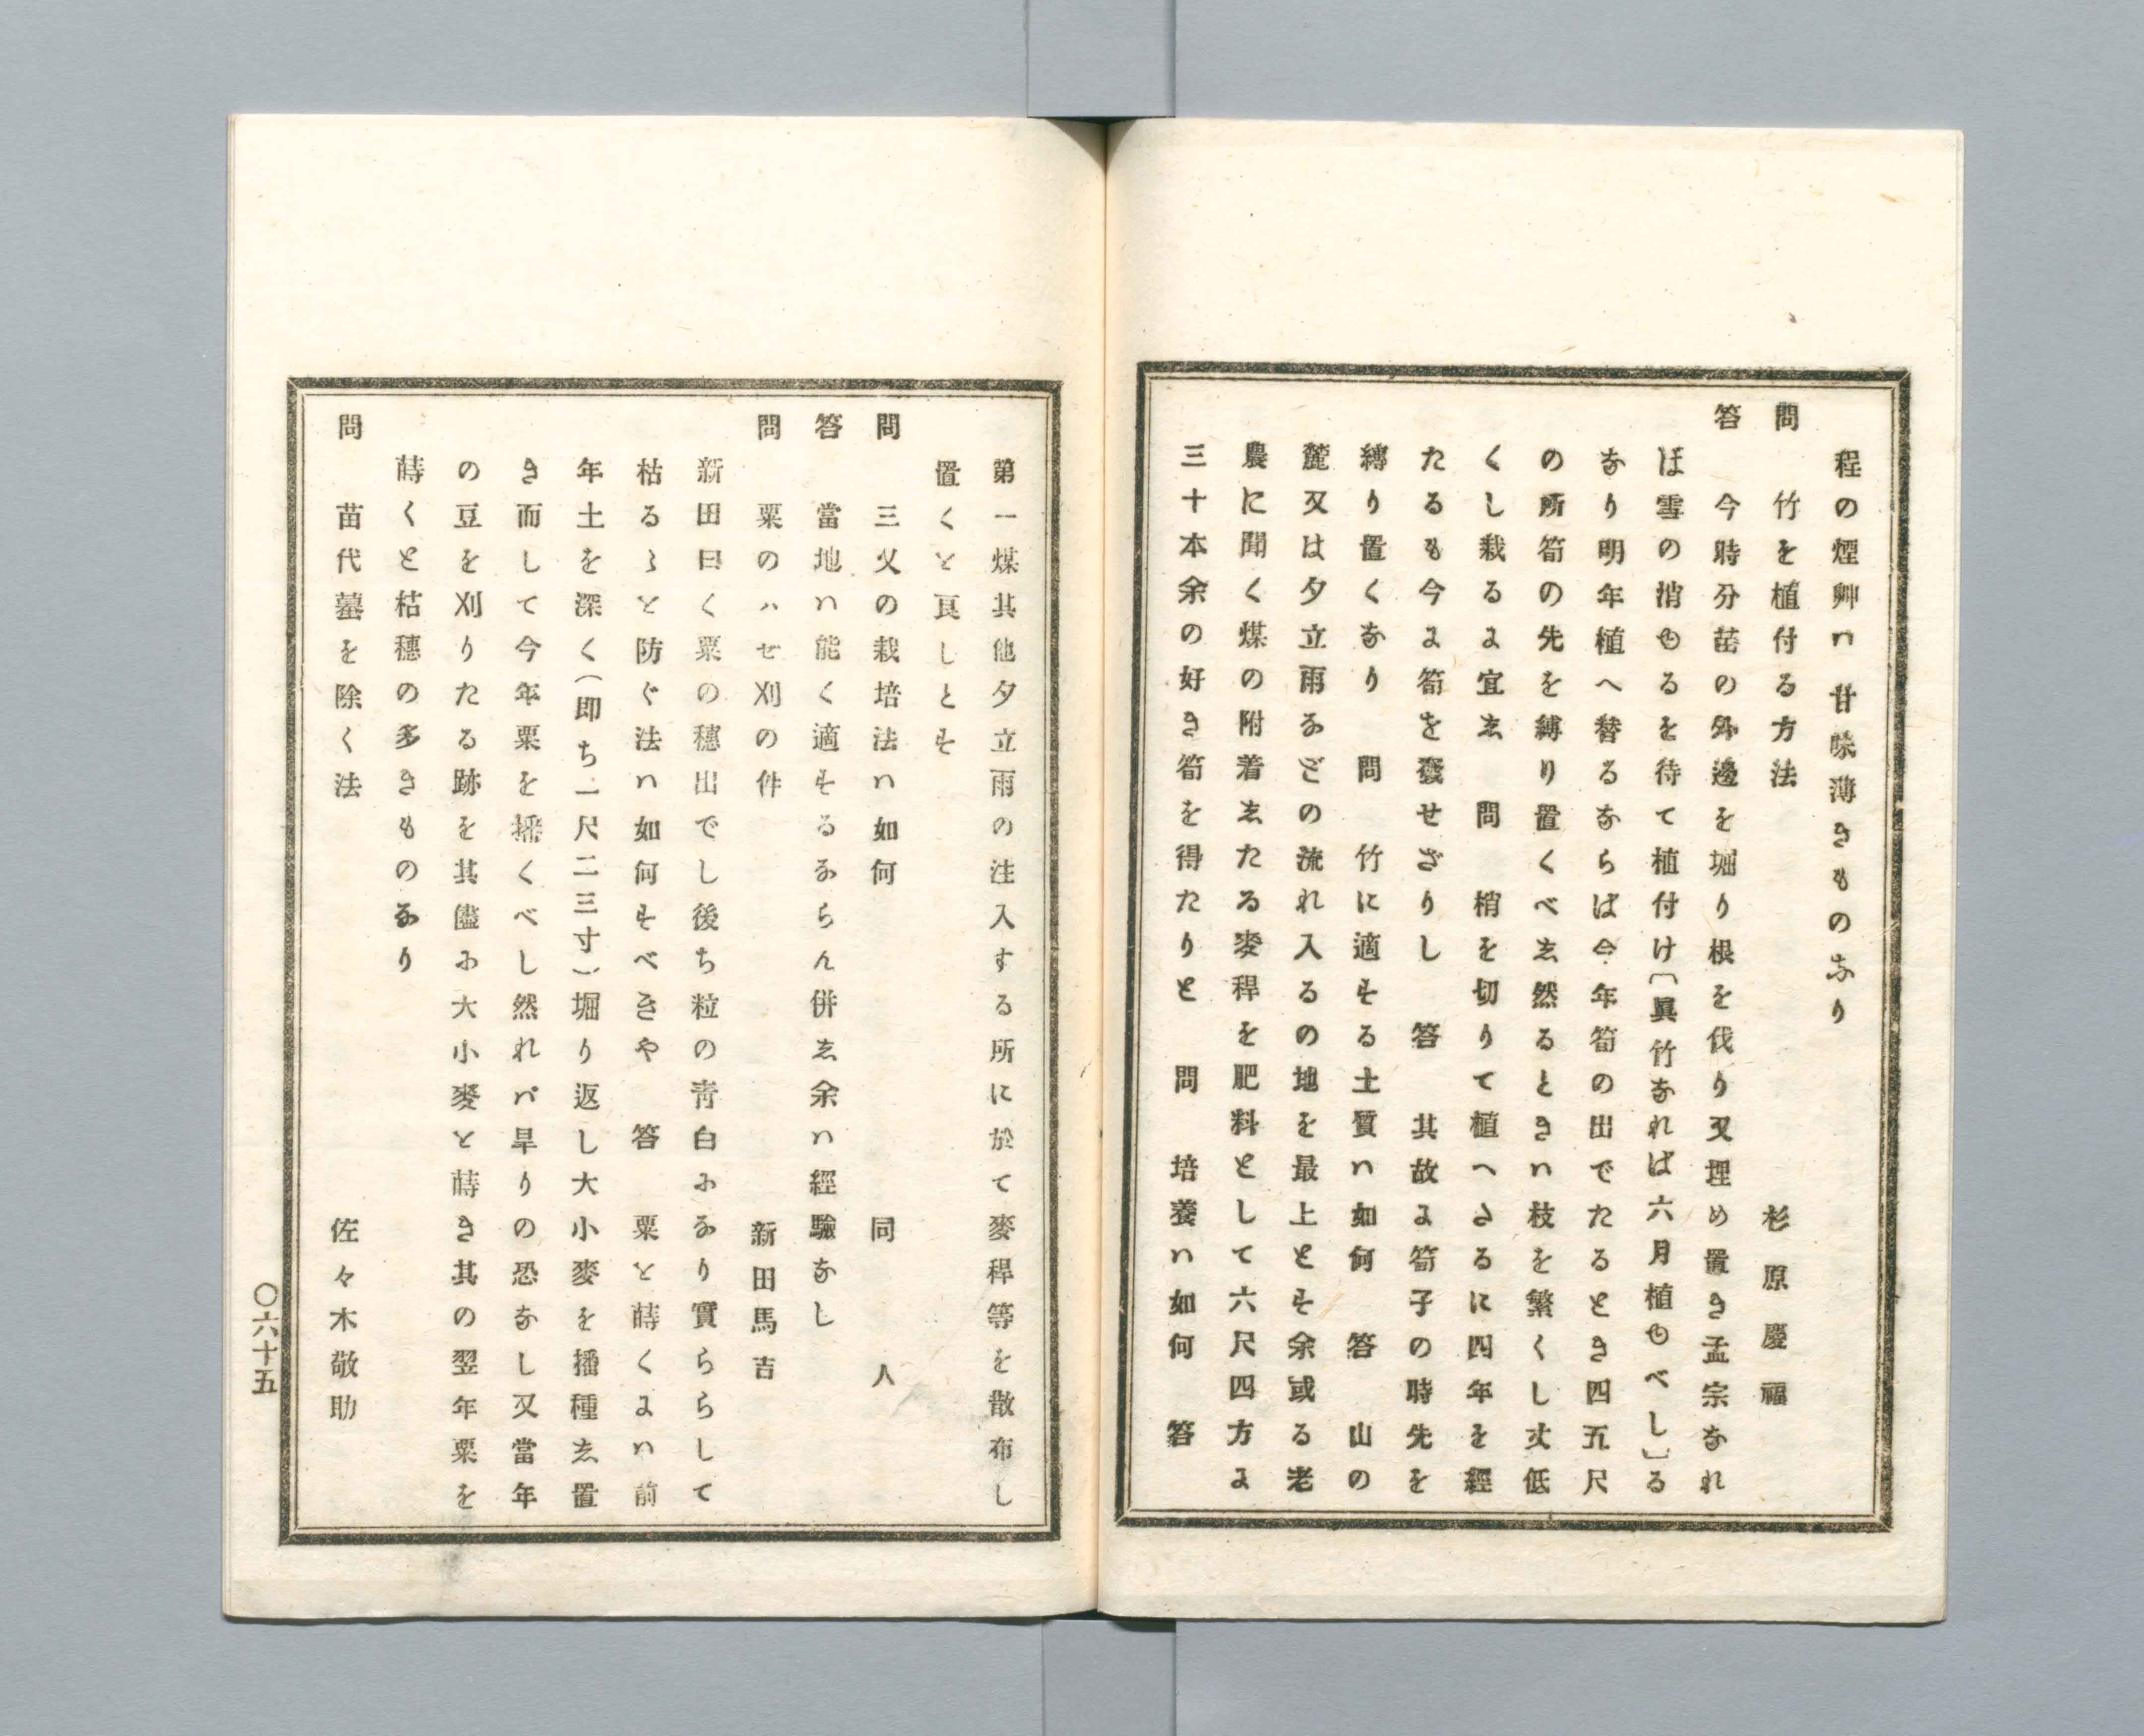 程の煙艸ハ甘味薄きものなり
問　竹を植付る方法　杉原慶福
答　今時分苗の外邊を堀り根を伐り又埋め置き孟宗なれ
ば雪の消ゆるを待て植付け〔眞竹なれば六月植ゆべし〕る
なり明年植へ替るならば今年筍の出でたるとき四五尺
の所筍の先を縛り置くべし然るときハ枝を繁くし丈低
くし栽るに宜し　問　梢を切りて植へさるに四年を經
たるも今に筍を發せざりし　答　其故に筍子の時先を
縛り置くなり　問　竹に適する土質ハ如何　答　山の
麓又は夕立雨などの流れ入るの地を最上とす余或る老
農に聞く煤の附着したる麥稈を肥料として六尺四方に
三十本余の好き筍を得たりと　問　培養ハ如何　答
第一煤其他夕立雨の注入する所に於て麥稈等を散布し
置くを良しとす
問　三又の栽培法ハ如何　同人
答　當地ハ能く適するならん併し余ハ經驗なし
問　粟のハセ刈の件　新田馬吉
新田曰く粟の穗出でし後ち粒の靑白になり實ららして
枯るゝを防ぐ法ハ如何すべきや　答　粟を蒔くにハ前
年土を深く（即ち一尺二三寸）堀り返し大小麥を播種し置
き而して今年粟を播くべし然れバ旱りの恐なし又當年
の豆を刈りたる跡を其儘に大小麥を蒔き其の翌年粟を
蒔くと枯穗の多きものなり
問　苗代蟇を除く法　佐々木敬助
〇六十五